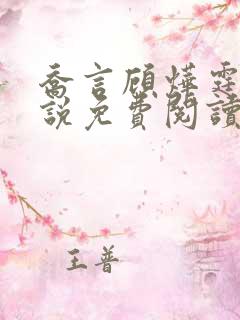 喬言顧燁霆
說免費閱讀
王普